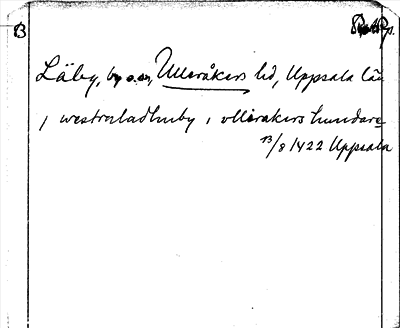 B
Läby, by o. sn, Ulleråkers hd, Uppsala län
j westraladhuby j vllerakers hundare
13/8 1422 Uppsala